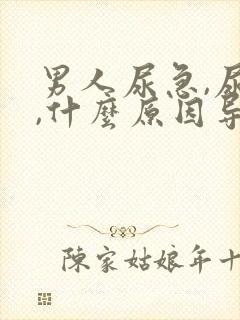 男人尿急,尿
,什麼原因导
陳家姑娘年十